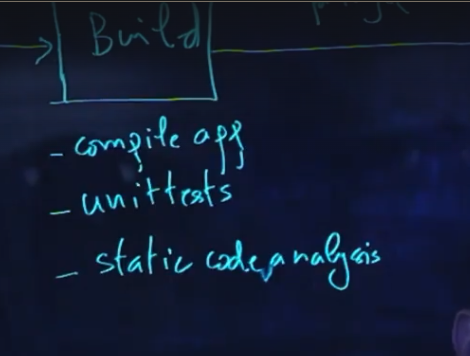 Build
- compile app
- unittests
- static code analysis